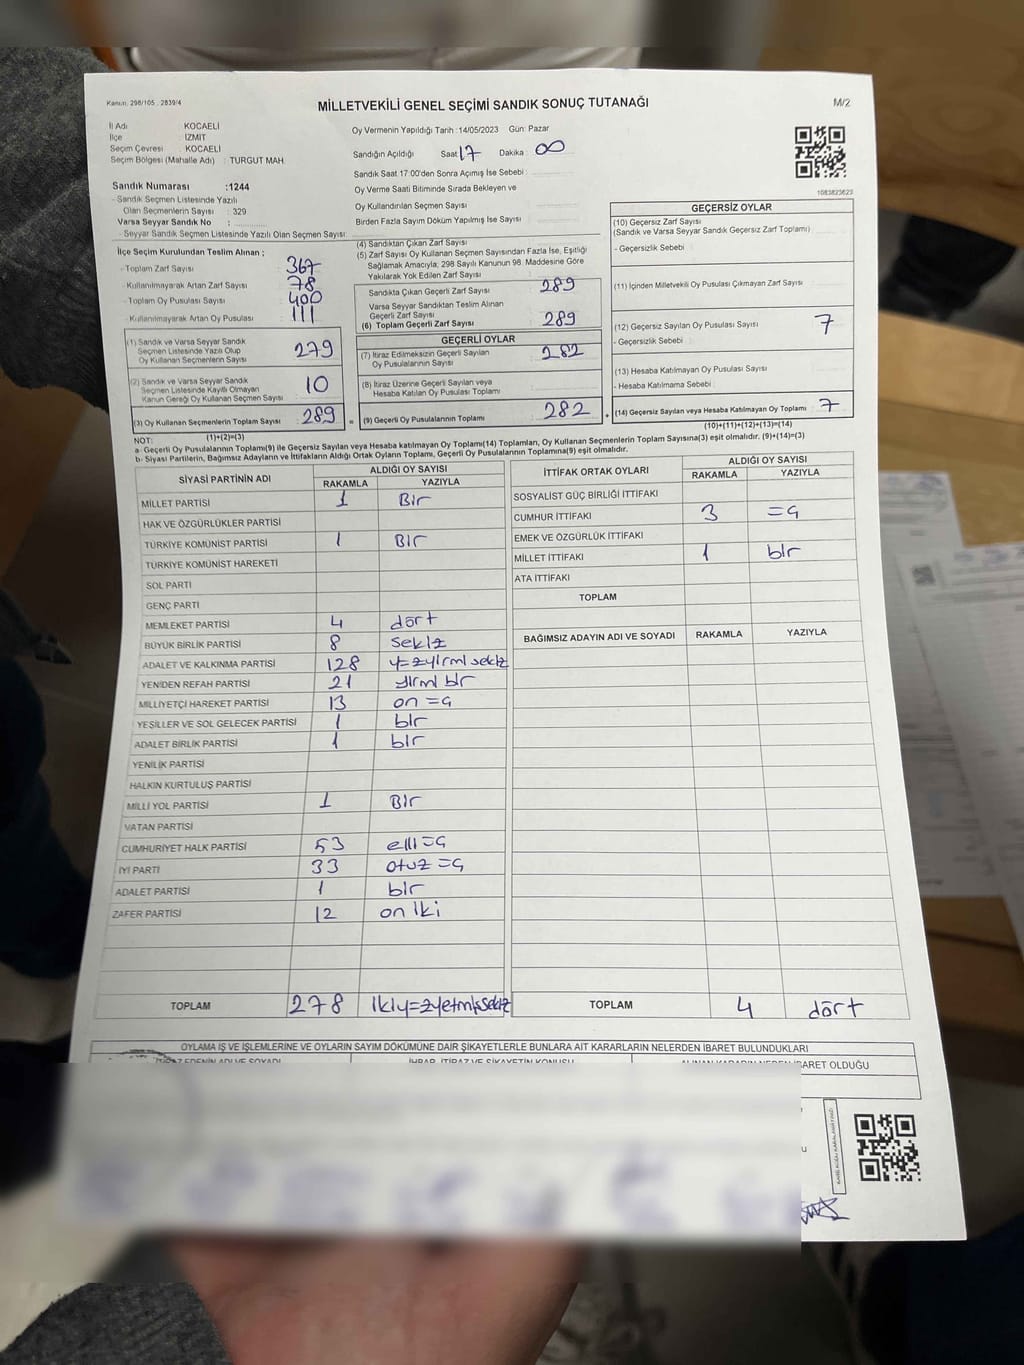 Kanun. 298/105 . 2839/4
MİLLETVEKİLİ GENEL SEÇİMİ SANDIK SONUÇ TUTANAĞI
M/2
İl Adı KOCAELİ
İlçe İZMİT
Seçim Çevresi KOCAELİ
Seçim Bölgesi (Mahalle Adı) : TURGUT MAH.
Sandık Numarası :1244
- Sandık Seçmen Listesinde Yazılı
Olan Seçmenlerin Sayısı : 329
Varsa Seyyar Sandık No :
- Seyyar Sandık Seçmen Listesinde Yazılı Olan Seçmen Sayısı:
Oy Vermenin Yapıldığı Tarih :14/05/2023 Gün: Pazar
Sandığın Açıldığı Saat 17 Dakika 00
Sandık Saat 17:00'den Sonra Açımış İse Sebebi :
Oy Verme Saati Bitiminde Sırada Bekleyen ve
Oy Kullandırılan Seçmen Sayısı
Birden Fazla Sayım Döküm Yapılmış İse Sayısı
1083823623
İlçe Seçim Kurulundan Teslim Alınan ;
- Toplam Zarf Sayısı 367
- Kullanılmayarak Artan Zarf Sayısı 78
- Toplam Oy Pusulası Sayısı 400
- Kullanılmayarak Artan Oy Pusulası 111
(1) Sandık ve Varsa Seyyar Sandık
Seçmen Listesinde Yazılı Olup
Oy Kullanan Seçmenlerin Sayısı 279
(2) Sandık ve Varsa Seyyar Sandık
Seçmen Listesinde Kayıtlı Olmayan
Kanun Gereği Oy Kullanan Seçmen Sayısı 10
(3) Oy Kullanan Seçmenlerin Toplam Sayısı 289
(1)+(2)=(3)
(4) Sandıktan Çıkan Zarf Sayısı
(5) Zarf Sayısı Oy Kullanan Seçmen Sayısından Fazla İse, Eşitliği
Sağlamak Amacıyla; 298 Sayılı Kanunun 98. Maddesine Göre
Yakılarak Yok Edilen Zarf Sayısı
Sandıkta Çıkan Geçerli Zarf Sayısı 289
Varsa Seyyar Sandıktan Teslim Alınan
Geçerli Zarf Sayısı
(6) Toplam Geçerli Zarf Sayısı 289
GEÇERLİ OYLAR
(7) İtiraz Edilmeksizin Geçerli Sayılan
Oy Pusulalarının Sayısı 282
(8) İtiraz Üzerine Geçerli Sayılan veya
Hesaba Katılan Oy Pusulası Toplamı
= (9) Geçerli Oy Pusulalarının Toplamı 282
GEÇERSİZ OYLAR
(10) Geçersiz Zarf Sayısı
(Sandık ve Varsa Seyyar Sandık Geçersiz Zarf Toplamı)
- Geçersizlik Sebebi
(11) İçinden Milletvekili Oy Pusulası Çıkmayan Zarf Sayısı
(12) Geçersiz Sayılan Oy Pusulası Sayısı 7
- Geçersizlik Sebebi :
(13) Hesaba Katılmayan Oy Pusulası Sayısı
- Hesaba Katılmama Sebebi
+ (14) Geçersiz Sayılan veya Hesaba Katılmayan Oy Toplamı 7
(10)+(11)+(12)+(13)=(14)
NOT:
a- Geçerli Oy Pusulalarının Toplamı(9) ile Geçersiz Sayılan veya Hesaba katılmayan Oy Toplamı(14) Toplamları, Oy Kullanan Seçmenlerin Toplam Sayısına(3) eşit olmalıdır. (9)+(14)=(3)
b- Siyasi Partilerin, Bağımsız Adayların ve İttifakların Aldığı Ortak Oyların Toplamı, Geçerli Oy Pusulalarının Toplamına(9) eşit olmalıdır.
SİYASİ PARTİNİN ADI ALDIĞI OY SAYISI
RAKAMLA YAZIYLA
MİLLET PARTİSİ 1 Bir
HAK VE ÖZGÜRLÜKLER PARTİSİ
TÜRKİYE KOMÜNİST PARTİSİ 1 Bir
TÜRKİYE KOMÜNİST HAREKETİ
SOL PARTİ
GENÇ PARTİ
MEMLEKET PARTİSİ 4 dört
BÜYÜK BİRLİK PARTİSİ 8 sekiz
ADALET VE KALKINMA PARTİSİ 128 y=zyirmi sekiz
YENİDEN REFAH PARTİSİ 21 yirmi bir
MİLLİYETÇİ HAREKET PARTİSİ 13 on =ç
YEŞİLLER VE SOL GELECEK PARTİSİ 1 bir
ADALET BİRLİK PARTİSİ 1 bir
YENİLİK PARTİSİ
HALKIN KURTULUŞ PARTİSİ
MİLLİ YOL PARTİSİ 1 Bir
VATAN PARTİSİ
CUMHURİYET HALK PARTİSİ 53 elli =ç
İYİ PARTİ 33 otuz =ç
ADALET PARTİSİ 1 bir
ZAFER PARTİSİ 12 on iki
TOPLAM 278 ikiy=zyetmişsekiz
İTTİFAK ORTAK OYLARI ALDIĞI OY SAYISI
RAKAMLA YAZIYLA
SOSYALİST GÜÇ BİRLİĞİ İTTİFAKI
CUMHUR İTTİFAKI 3 =ç
EMEK VE ÖZGÜRLÜK İTTİFAKI
MİLLET İTTİFAKI 1 bir
ATA İTTİFAKI
TOPLAM
BAĞIMSIZ ADAYIN ADI VE SOYADI RAKAMLA YAZIYLA
TOPLAM 4 dört
OYLAMA İŞ VE İŞLEMLERİNE VE OYLARIN SAYIM DÖKÜMÜNE DAİR ŞİKAYETLERLE BUNLARA AİT KARARLARIN NELERDEN İBARET BULUNDUKLARI
İHBAR, İTİRAZ VE ŞİKAYETİN KONUSU
BARET OLDUĞU